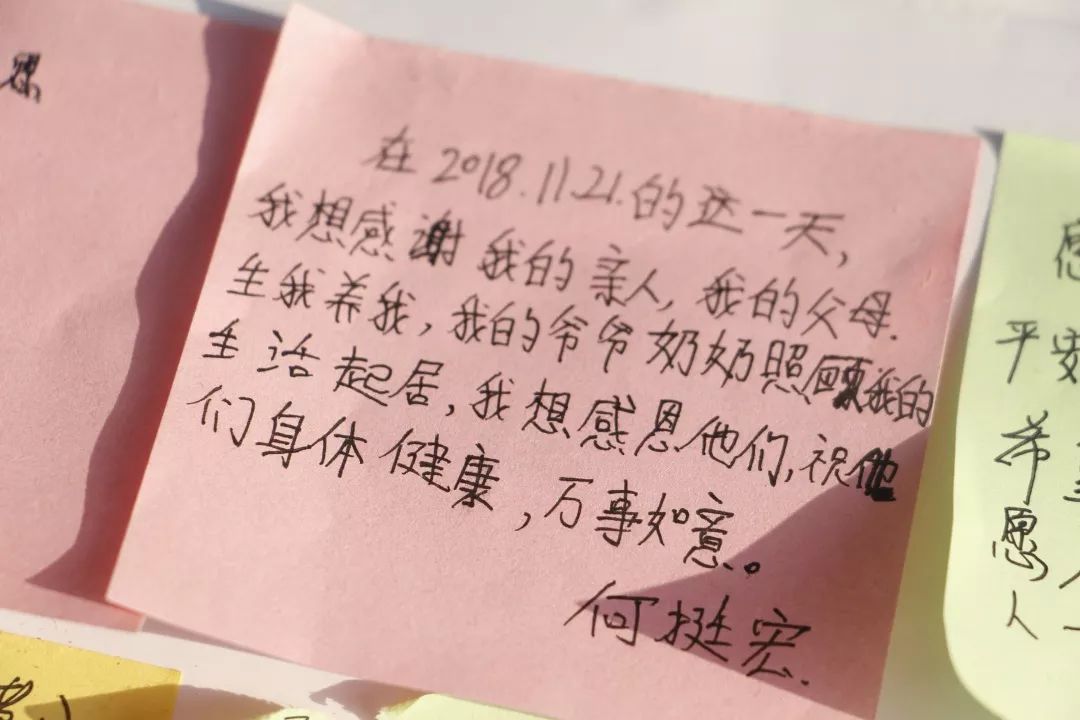 在2018.11.21.的这一天，
我想感谢我的亲人，我的父母.
生我养我，我的爷爷奶奶照顾我的
生活起居，我想感恩他们，祝他
们身体健康，万事如意。
何挺宏.
平安
希
愿
人一